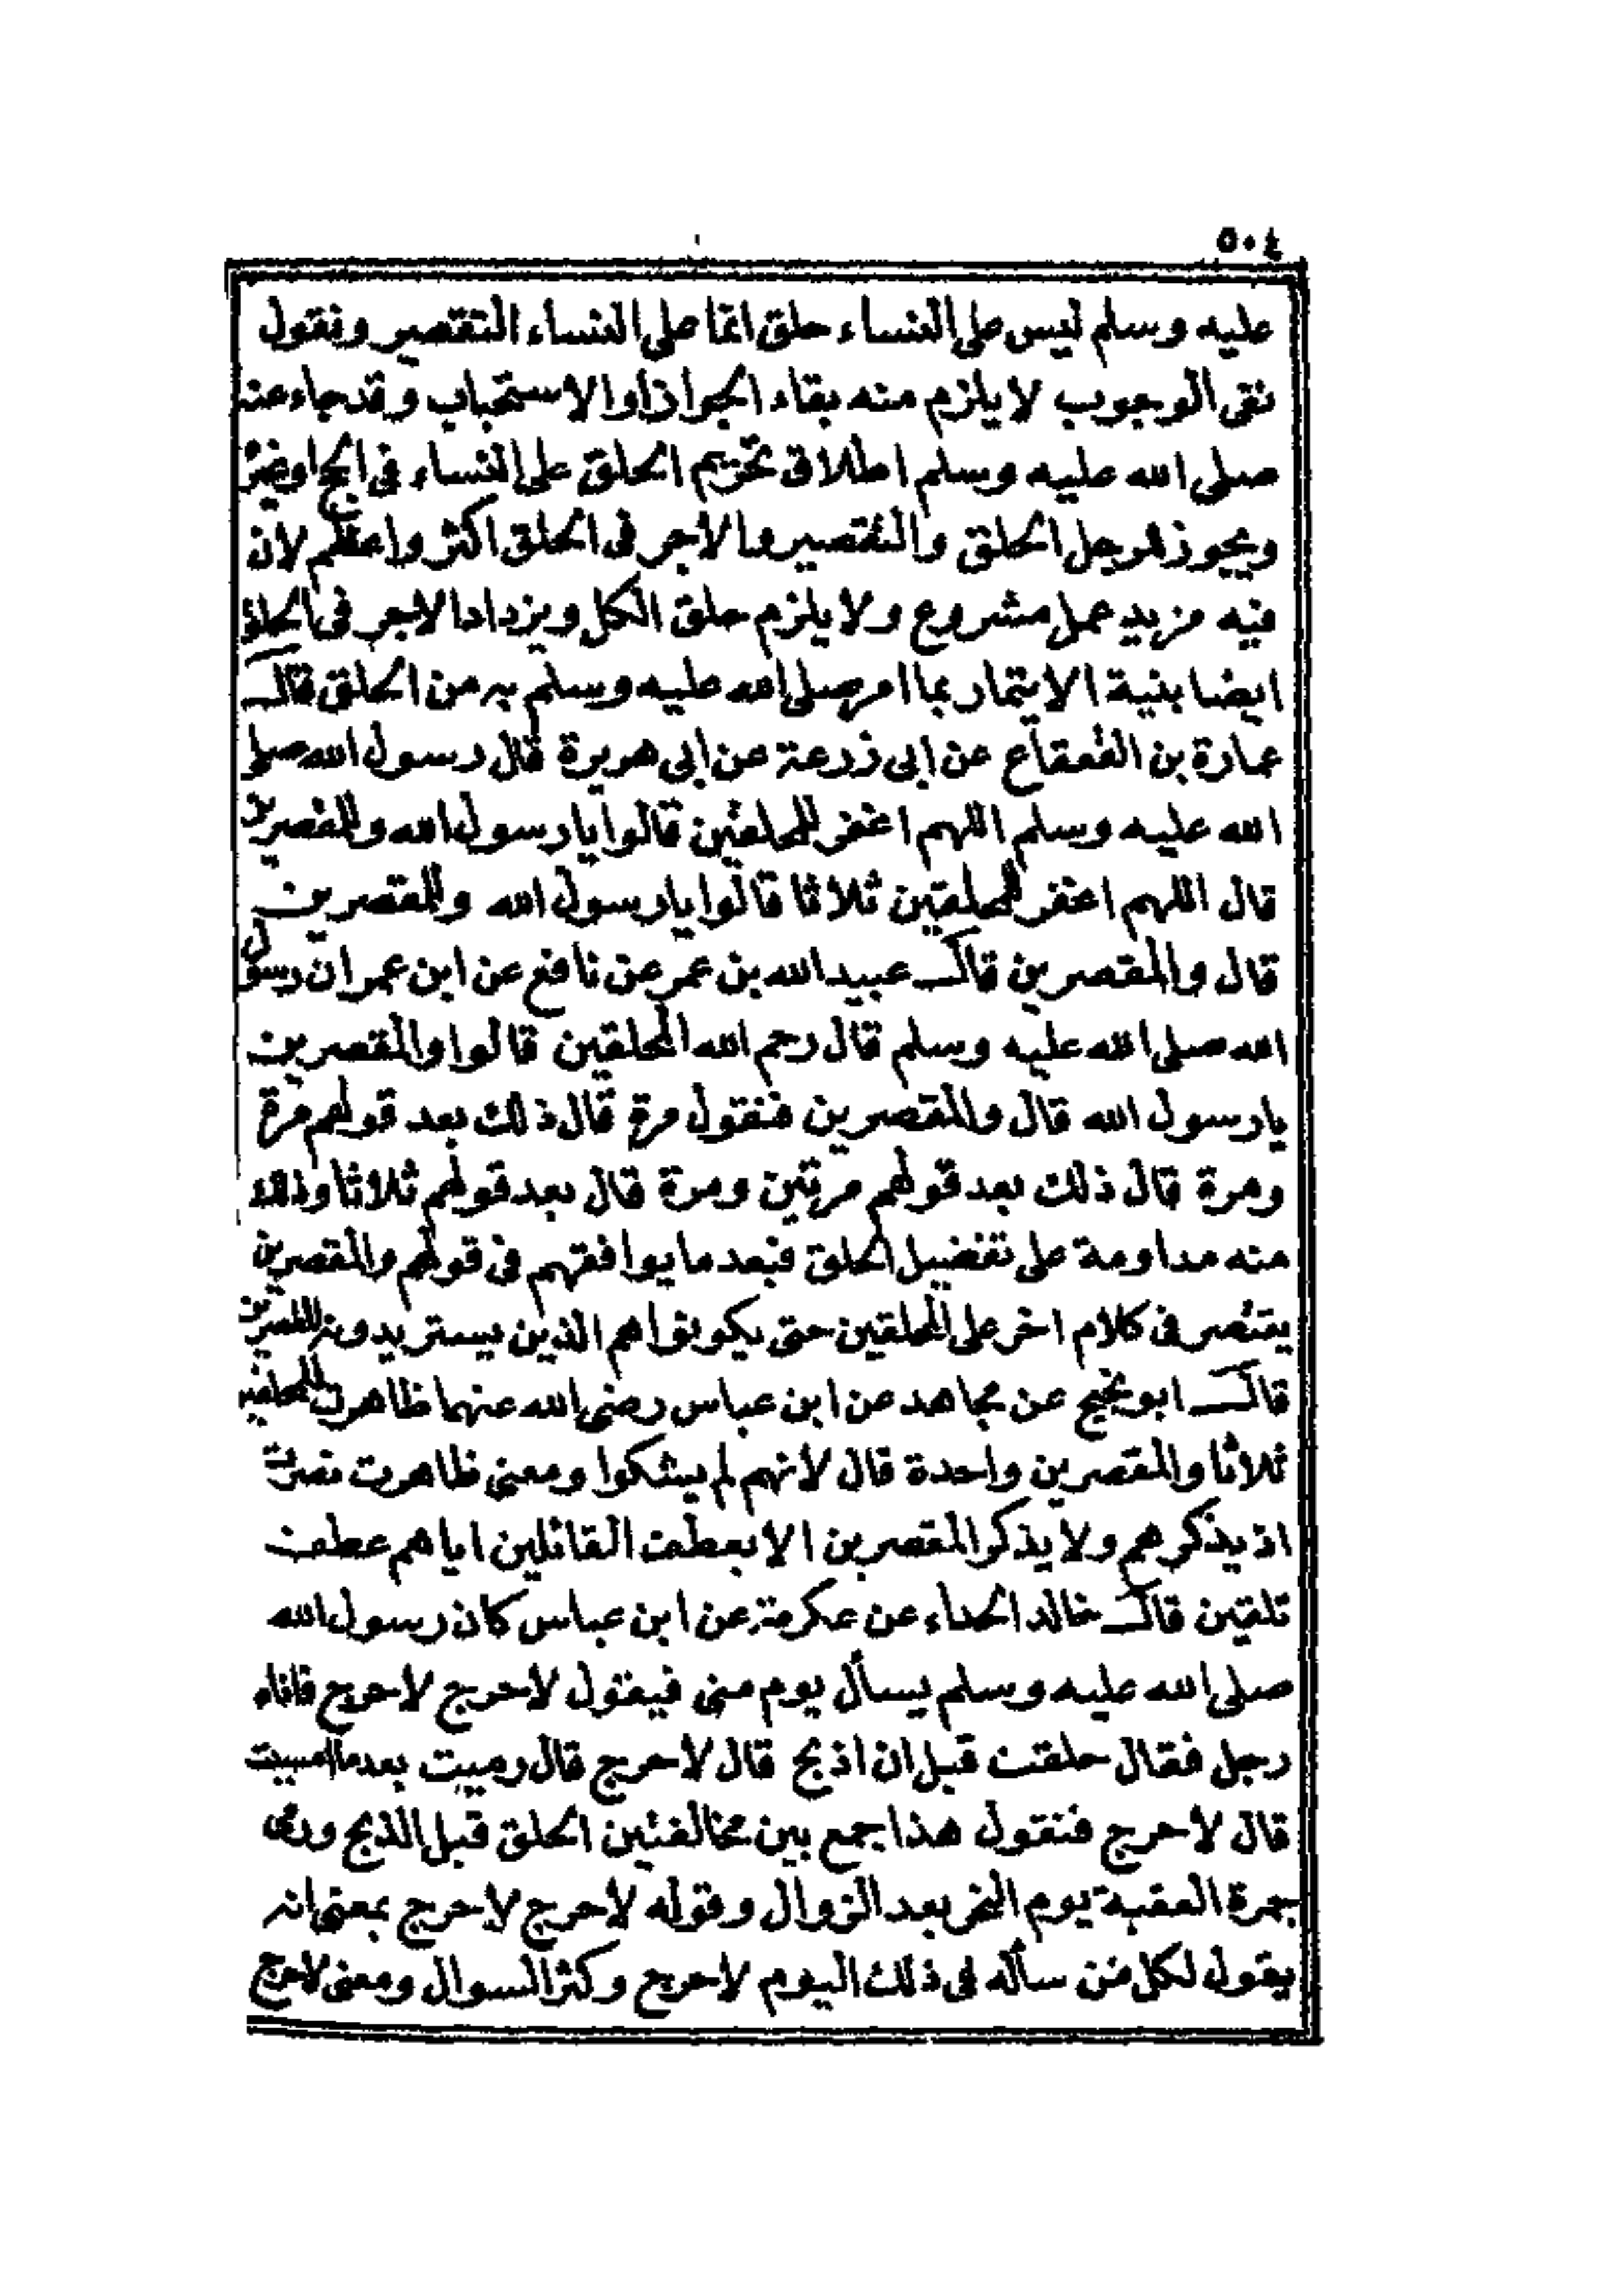 ٥٠٤
عليه وسلم ليس على النساء حلق انما على النساء التقصير ونقول
نفى الوجوب لا يلزم منه بقاء الجواز او الاستحباب وقد جاء عنه
صلى الله عليه وسلم اطلاق تحريم الحلق على النساء فى الحج او غيره
ويجوز للرجل الحلق والتقصير والاجر فى الحلق اكثر واعظم لان
فيه مزيد عمل مشروع ولا يلزم حلق الكل ويزداد الاجر فى الحلق
ايضا بنية الايتمار بما امر صلى الله عليه وسلم به من الحلق قال
عمارة بن القعقاع عن ابى زرعة عن ابى هريرة قال رسول الله صلى
الله عليه وسلم اللهم اغفر للمحلقين قالوا يا رسول الله وللمقصرين
قال اللهم اغفر للمحلقين ثلاثا قالوا يا رسول الله وللمقصرين
قال وللمقصرين قال عبيد الله بن عمر عن نافع عن ابن عمر ان رسول
الله صلى الله عليه وسلم قال رحم الله المحلقين قالوا والمقصرين
يا رسول الله قال والمقصرين فنقول مرة قال ذلك بعد قولهم مرة
ومرة قال ذلك بعد قولهم مرتين ومرة قال بعد قولهم ثلاثا وذلك
منه مداومة على تفضيل الحلق فبعد ما يوافقهم فى قولهم والمقصرين
يقتصر فى كلام اخر على المحلقين حتى يكونوا هم الذين يستزيدونه للمقصرين
قال ابو نجيح عن مجاهد عن ابن عباس رضى الله عنهما ظاهرت للمحلقين
ثلاثا والمقصرين واحدة قال لانهم لم يشكوا ومعنى ظاهرت نصرت
اذ يذكرهم ولا يذكر المقصرين الا بعطف القائلين اياهم عطف
تلقين قال خالد الحذاء عن عكرمة عن ابن عباس كان رسول الله
صلى الله عليه وسلم يسأل يوم منى فيقول لا حرج لا حرج فاتاه
رجل فقال حلقت قبل ان اذبح قال لا حرج قال رميت بعد ما امسيت
قال لا حرج فنقول هذا جمع بين مخالفتين الحلق قبل الذبح ورمى
جمرة العقبة يوم النحر بعد الزوال وقوله لا حرج لا حرج بمعنى انه
يقول لكل من سأله فى ذلك اليوم لا حرج وكثر السوال ومعنى لا حرج